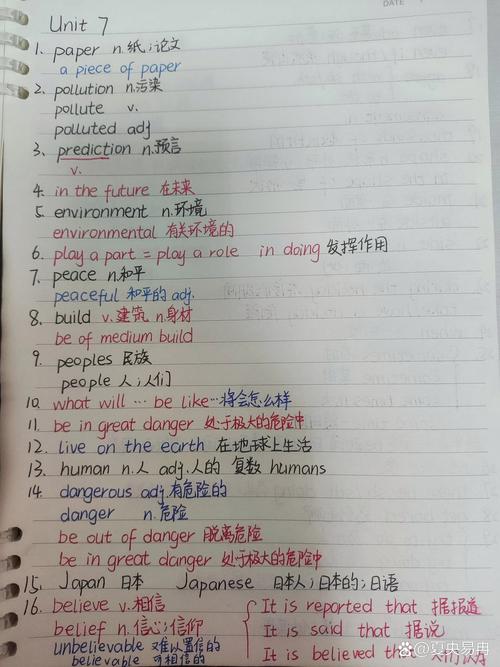 DATE
Unit 7
1. paper n.纸;论文
a piece of paper
2. pollution n.污染
pollute v.
polluted adj
3. prediction n.预言
v.
4. in the future 在未来
5. environment n.环境
environmental 有关环境的
6. play a part = play a role in doing 发挥作用
7. peace n.和平
peaceful 和平的 adj.
8. build v.建筑 n.身材
be of medium build
9. peoples 民族
people 人;人们
10. what will … be like…将会怎么样
11. be in great danger 处于极大的危险中
12. live on the earth 在地球上生活
13. human n.人 adj.人的 复数 humans
14. dangerous adj.有危险的
danger n.危险
be out of danger 脱离危险
be in great danger 处于极大的危险中
15. Japan 日本 Japanese 日本人;日本的;日语
16. believe v.相信 It is reported that 据报道
belief n.信心;信仰 It is said that 据说
unbelievable 难以置信的 It is believed that 人们认为
believable 可相信的
百家号/夏央易用